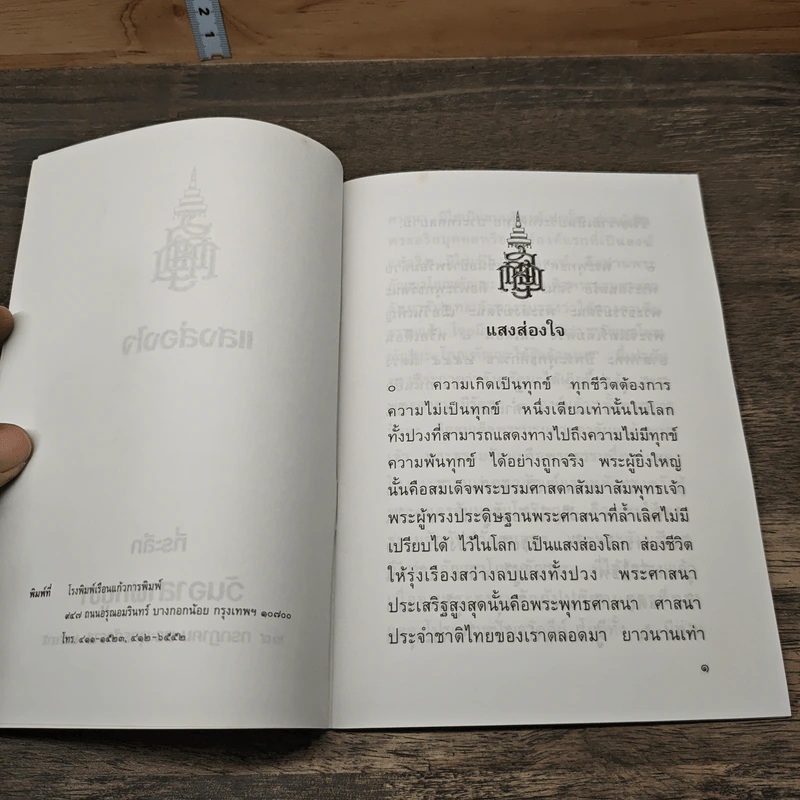 2
1
แสงส่องใจ
ที่ระลึก
พิมพ์ที่ โรงพิมพ์เรือนแก้วการพิมพ์
๙๔๗ ถนนอรุณอมรินทร์ บางกอกน้อย กรุงเทพฯ ๑๐๗๐๐
โทร. ๔๑๑-๑๕๒๓, ๔๑๒-๖๕๕๒
แสงส่องใจ
๐ ความเกิดเป็นทุกข์ ทุกชีวิตต้องการ
ความไม่เป็นทุกข์ หนึ่งเดียวเท่านั้นในโลก
ทั้งปวงที่สามารถแสดงทางไปถึงความไม่มีทุกข์
ความพ้นทุกข์ ได้อย่างถูกจริง พระผู้ยิ่งใหญ่
นั้นคือสมเด็จพระบรมศาสดาสัมมาสัมพุทธเจ้า
พระผู้ทรงประดิษฐานพระศาสนาที่ล้ำเลิศไม่มี
เปรียบได้ ไว้ในโลก เป็นแสงส่องโลก ส่องชีวิต
ให้รุ่งเรืองสว่างลบแสงทั้งปวง พระศาสนา
ประเสริฐสูงสุดนั้นคือพระพุทธศาสนา ศาสนา
ประจำชาติไทยของเราตลอดมา ยาวนานเท่า
๑